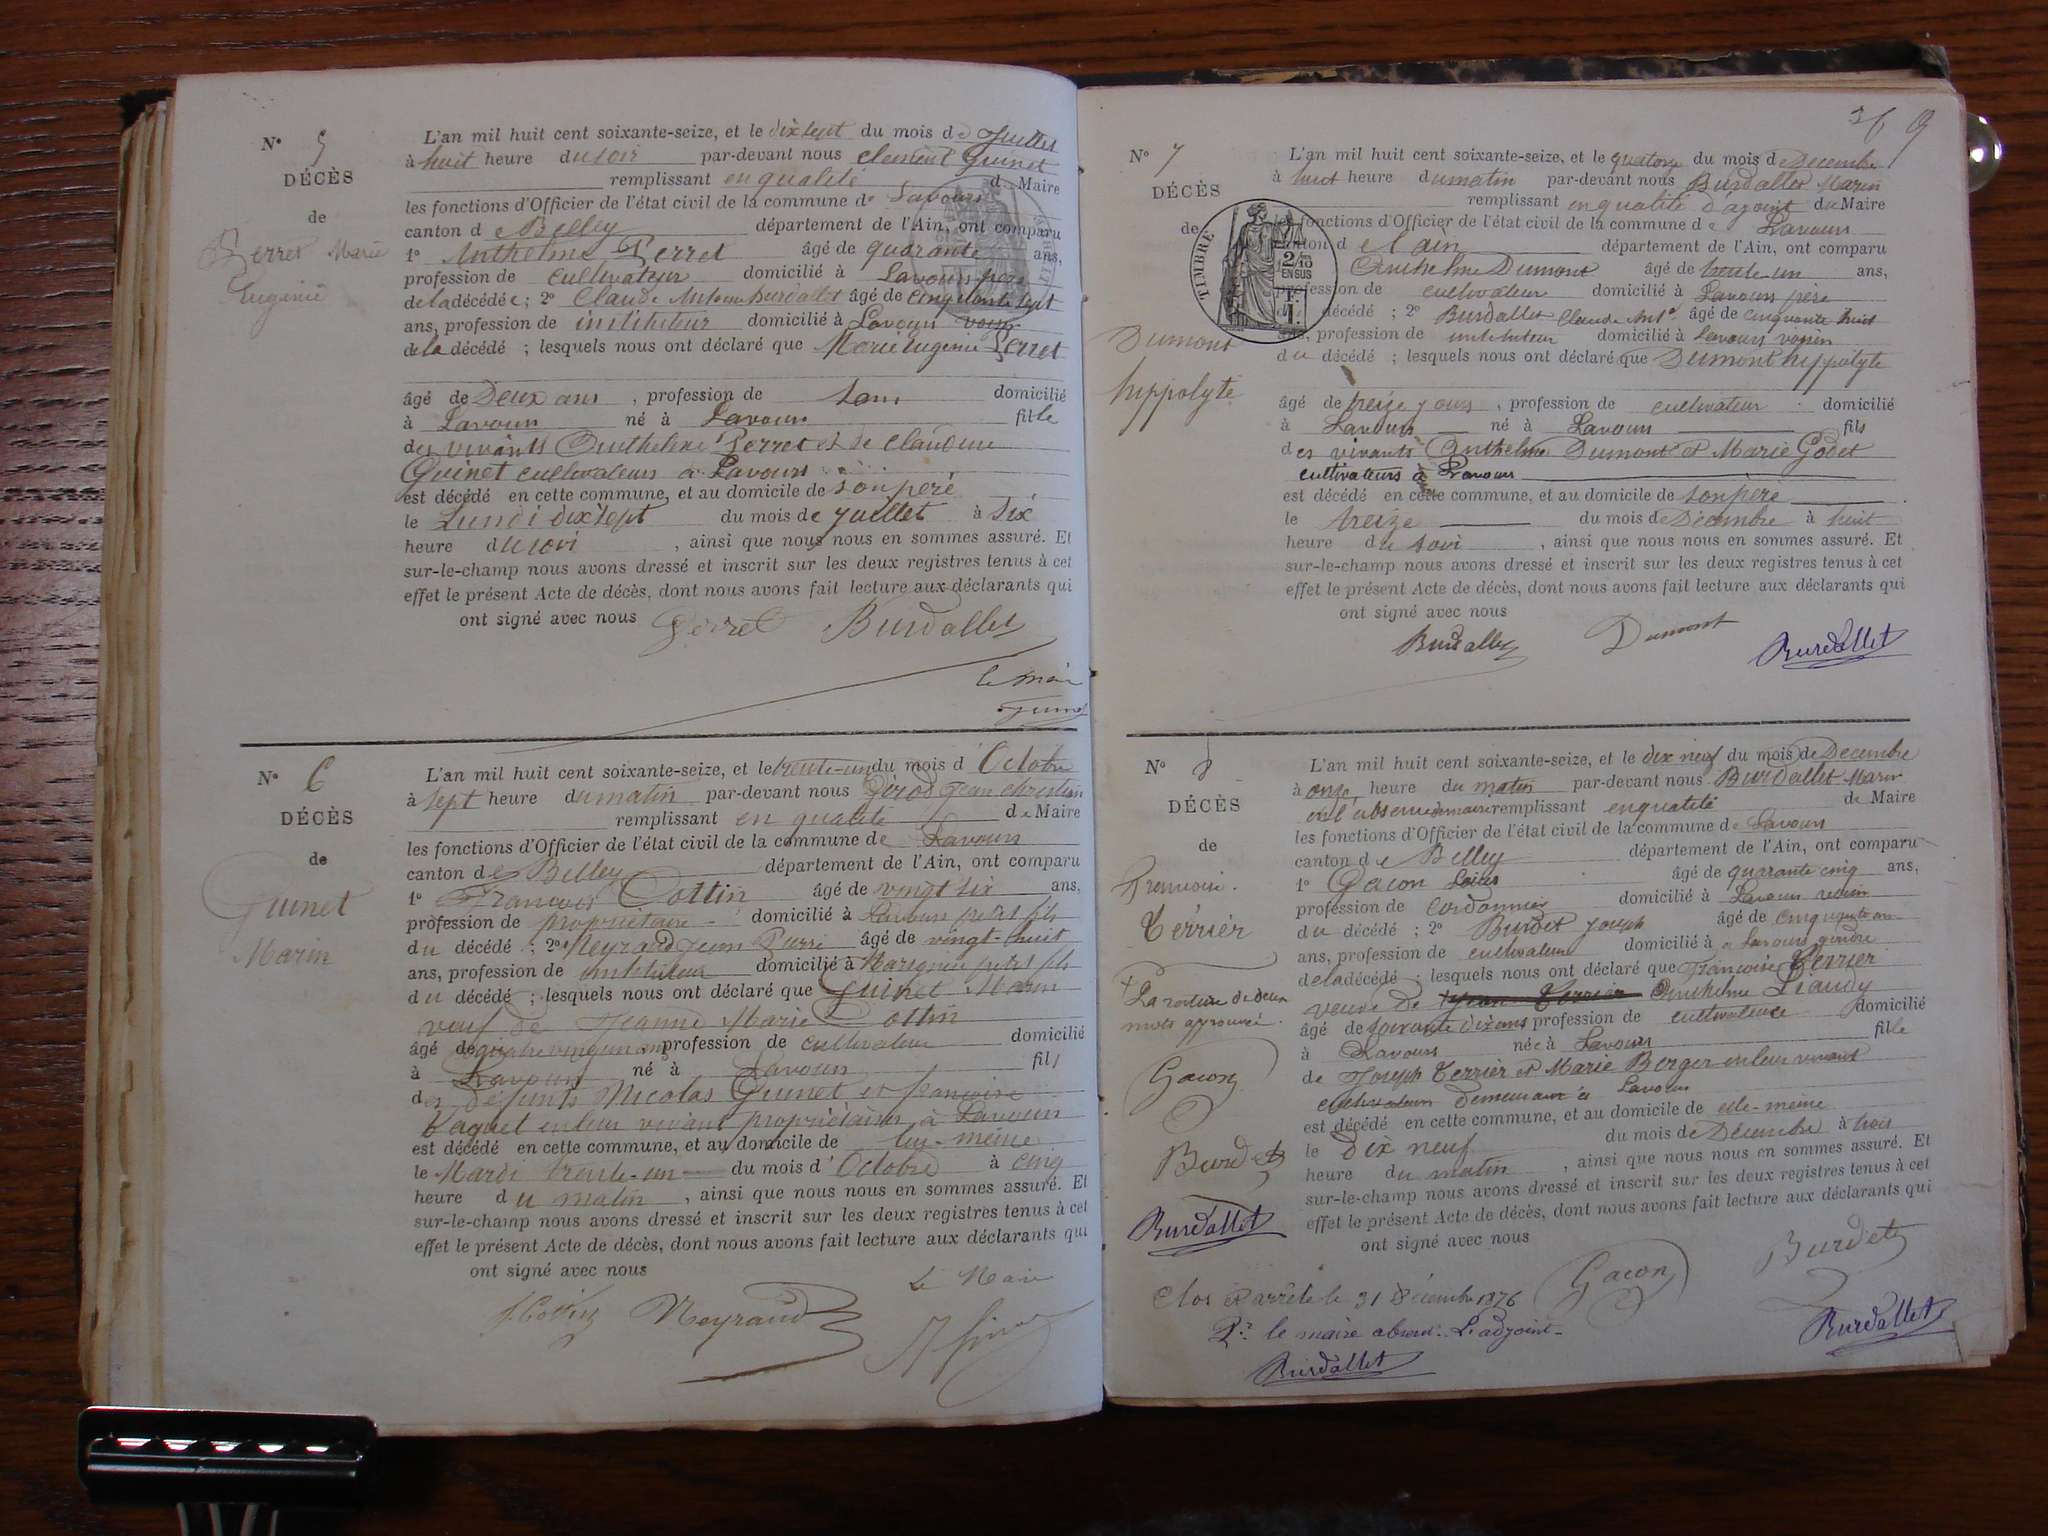 N° 5
DÉCÈS
de
Perret Marie
Eugénie
L'an mil huit cent soixante-seize, et le dix sept du mois de Juillet
à huit heure du soir par-devant nous clement Guinet
remplissant en qualité de Maire
les fonctions d'Officier de l'état civil de la commune de Lavours
canton de Belley département de l'Ain, ont comparu
1° Anthelme Perret âgé de quarante ans,
profession de cultivateur domicilié à Lavours père
de la décédée; 2° Claude Antoine Burdallet âgé de cinquante sept
ans, profession de instituteur domicilié à Lavours voisin
de la décédé ; lesquels nous ont déclaré que Marie Eugenie Perret
âgé de Deux ans , profession de sans domicilié
à Lavours né à Lavours fille
des vivants Anthelme Perret et de Claudine
Guinet cultivateurs à Lavours
est décédé en cette commune, et au domicile de son pere
le Lundi dix sept du mois de juillet à six
heure du soir , ainsi que nous nous en sommes assuré. Et
sur-le-champ nous avons dressé et inscrit sur les deux registres tenus à cet
effet le présent Acte de décès, dont nous avons fait lecture aux déclarants qui
ont signé avec nous Perret Burdallet
le Maire
Guinet
N° 6
DÉCÈS
de
Guinet
Marin
L'an mil huit cent soixante-seize, et le trente-un du mois d'Octobre
à sept heure du matin par-devant nous Girod Jean Christian
remplissant en qualité de Maire
les fonctions d'Officier de l'état civil de la commune de Lavours
canton de Belley département de l'Ain, ont comparu
1° François Cottin âgé de vingt six ans,
profession de propriétaire domicilié à Lavours petit fils
du décédé ; 2° Neyraud Jean Pierre âgé de vingt-huit
ans, profession de instituteur domicilié à petit fils
du décédé ; lesquels nous ont déclaré que Guinet Marin
veuf de Jeanne Marie Cottin
âgé de quatre vingt un ans, profession de cultivateur domicilié
à Lavours né à Lavours fils
des défunts Nicolas Guinet et françoise
en leur vivant propriétaires à Lavours
est décédé en cette commune, et au domicile de lui-même
le Mardi trente-un du mois d'Octobre à cinq
heure du matin , ainsi que nous nous en sommes assuré. Et
sur-le-champ nous avons dressé et inscrit sur les deux registres tenus à cet
effet le présent Acte de décès, dont nous avons fait lecture aux déclarants qui
ont signé avec nous
Le Maire
f. Cottin Neyraud
36 9
N° 7
DÉCÈS
de
Dumont
hippolyte
TIMBRE
2/10
EN SUS
L'an mil huit cent soixante-seize, et le quatorze du mois de Decembre
à huit heure du matin par-devant nous Burdallet Marin
remplissant en qualité d'ajoint du Maire
les fonctions d'Officier de l'état civil de la commune de Lavours
canton de l'ain département de l'Ain, ont comparu
Anthelme Dumont âgé de trente-un ans,
profession de cultivateur domicilié à Lavours père
décédé ; 2° Burdallet Claude Ant° âgé de cinquante huit
ans, profession de instituteur domicilié à Lavours voisin
du décédé ; lesquels nous ont déclaré que Dumont hippolyte
âgé de treize jours , profession de cultivateur domicilié
à Lavours né à Lavours fils
des vivants Anthelme Dumont et Marie Godet
cultivateurs à Lavours
est décédé en cette commune, et au domicile de son pere
le treize du mois de Décembre à huit
heure du soir , ainsi que nous nous en sommes assuré. Et
sur-le-champ nous avons dressé et inscrit sur les deux registres tenus à cet
effet le présent Acte de décès, dont nous avons fait lecture aux déclarants qui
ont signé avec nous
Burdallet Dumont Burdallet
N° 8
DÉCÈS
de
Françoise
Terrier
La rature de deux
mots approuvée.
Gacon
Burdet
Burdallet
L'an mil huit cent soixante-seize, et le dix neuf du mois de Decembre
à onze heure du matin par-devant nous Burdallet Marin
remplissant en qualité de Maire
les fonctions d'Officier de l'état civil de la commune de Lavours
canton de Belley département de l'Ain, ont comparu
1° Gacon Louis âgé de quarante cinq ans,
profession de cordonnier domicilié à Lavours voisin
du décédé ; 2° Burdet joseph âgé de cinquante un
ans, profession de cultivateur domicilié à Lavours gendre
de la décédé ; lesquels nous ont déclaré que françoise Terrier
veuve de Jean Terrier Anthelme
âgé de soixante dix ans profession de cultivateur domicilié
à Lavours née à Lavours fille
de Joseph Terrier et Marie Berger en leur vivant
cultivateurs demeurant à Lavours
est décédé en cette commune, et au domicile de elle-même
le dix neuf du mois de Décembre à trois
heure du matin , ainsi que nous nous en sommes assuré. Et
sur-le-champ nous avons dressé et inscrit sur les deux registres tenus à cet
effet le présent Acte de décès, dont nous avons fait lecture aux déclarants qui
ont signé avec nous
Burdet
Gacon
Burdallet
Clos et arrêté le 31 Décembre 1876
Pr. le maire absent. L'adjoint
Burdallet